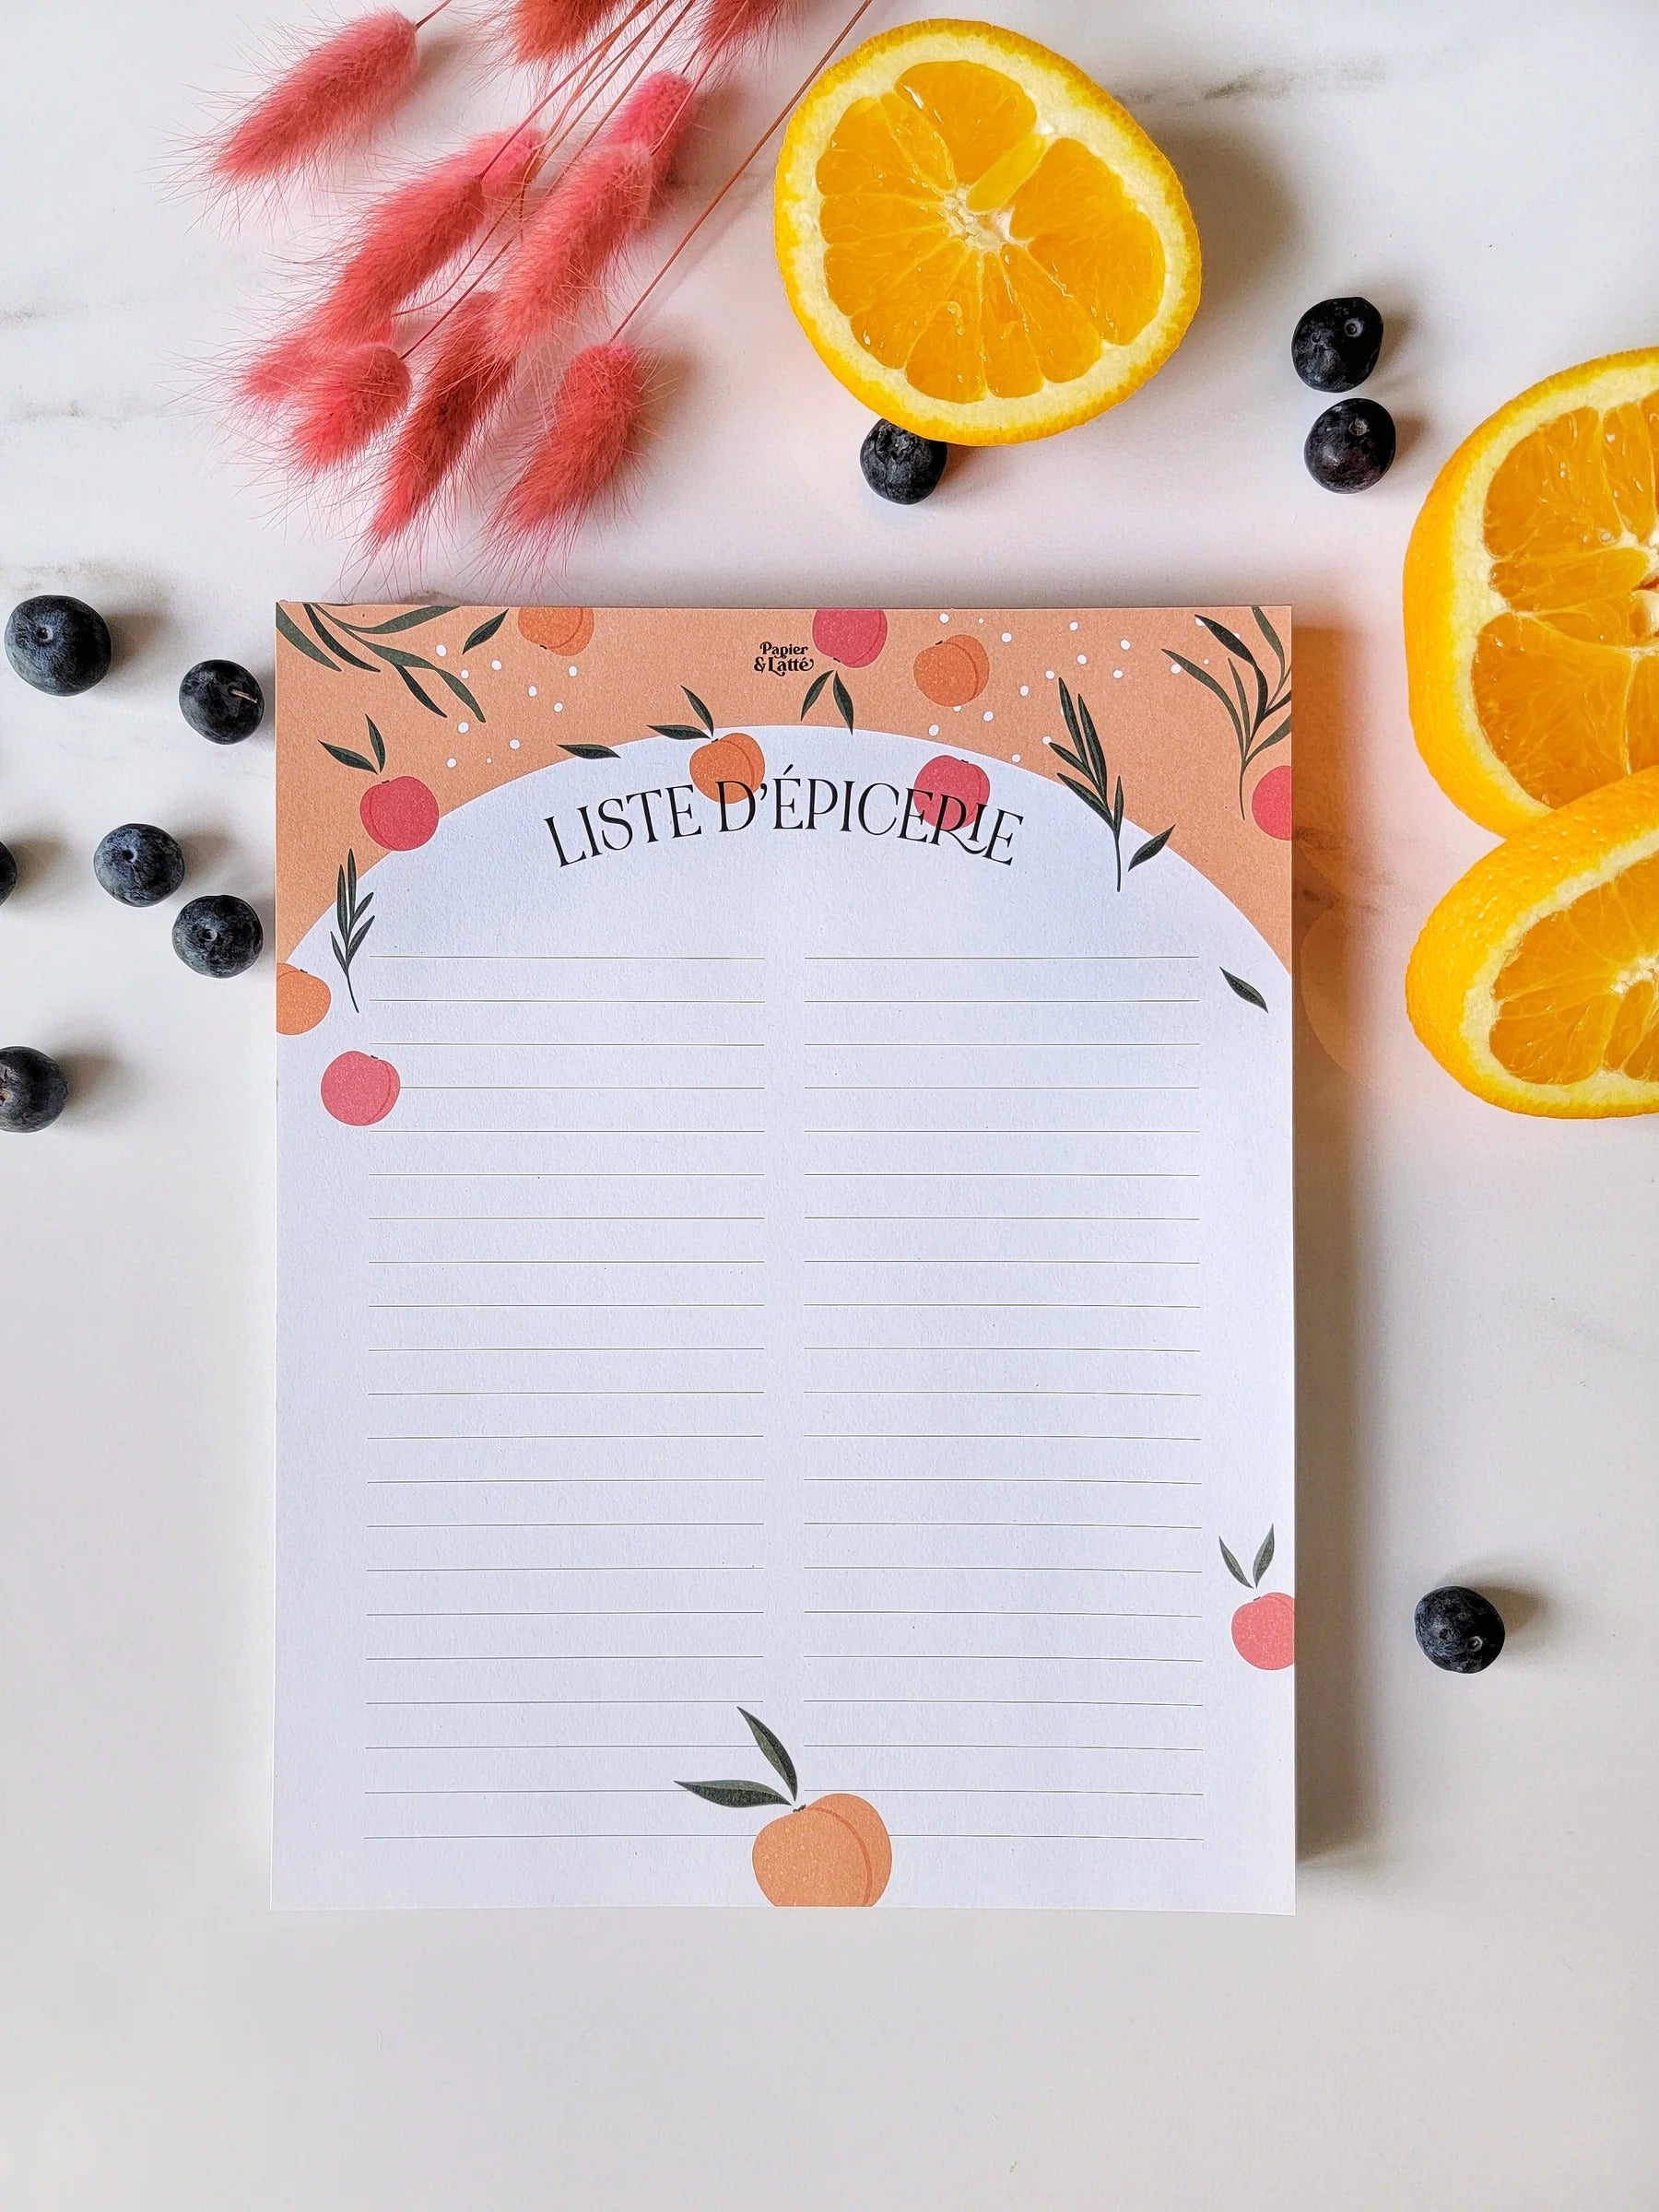 Papier
& Latté
LISTE D'ÉPICERIE